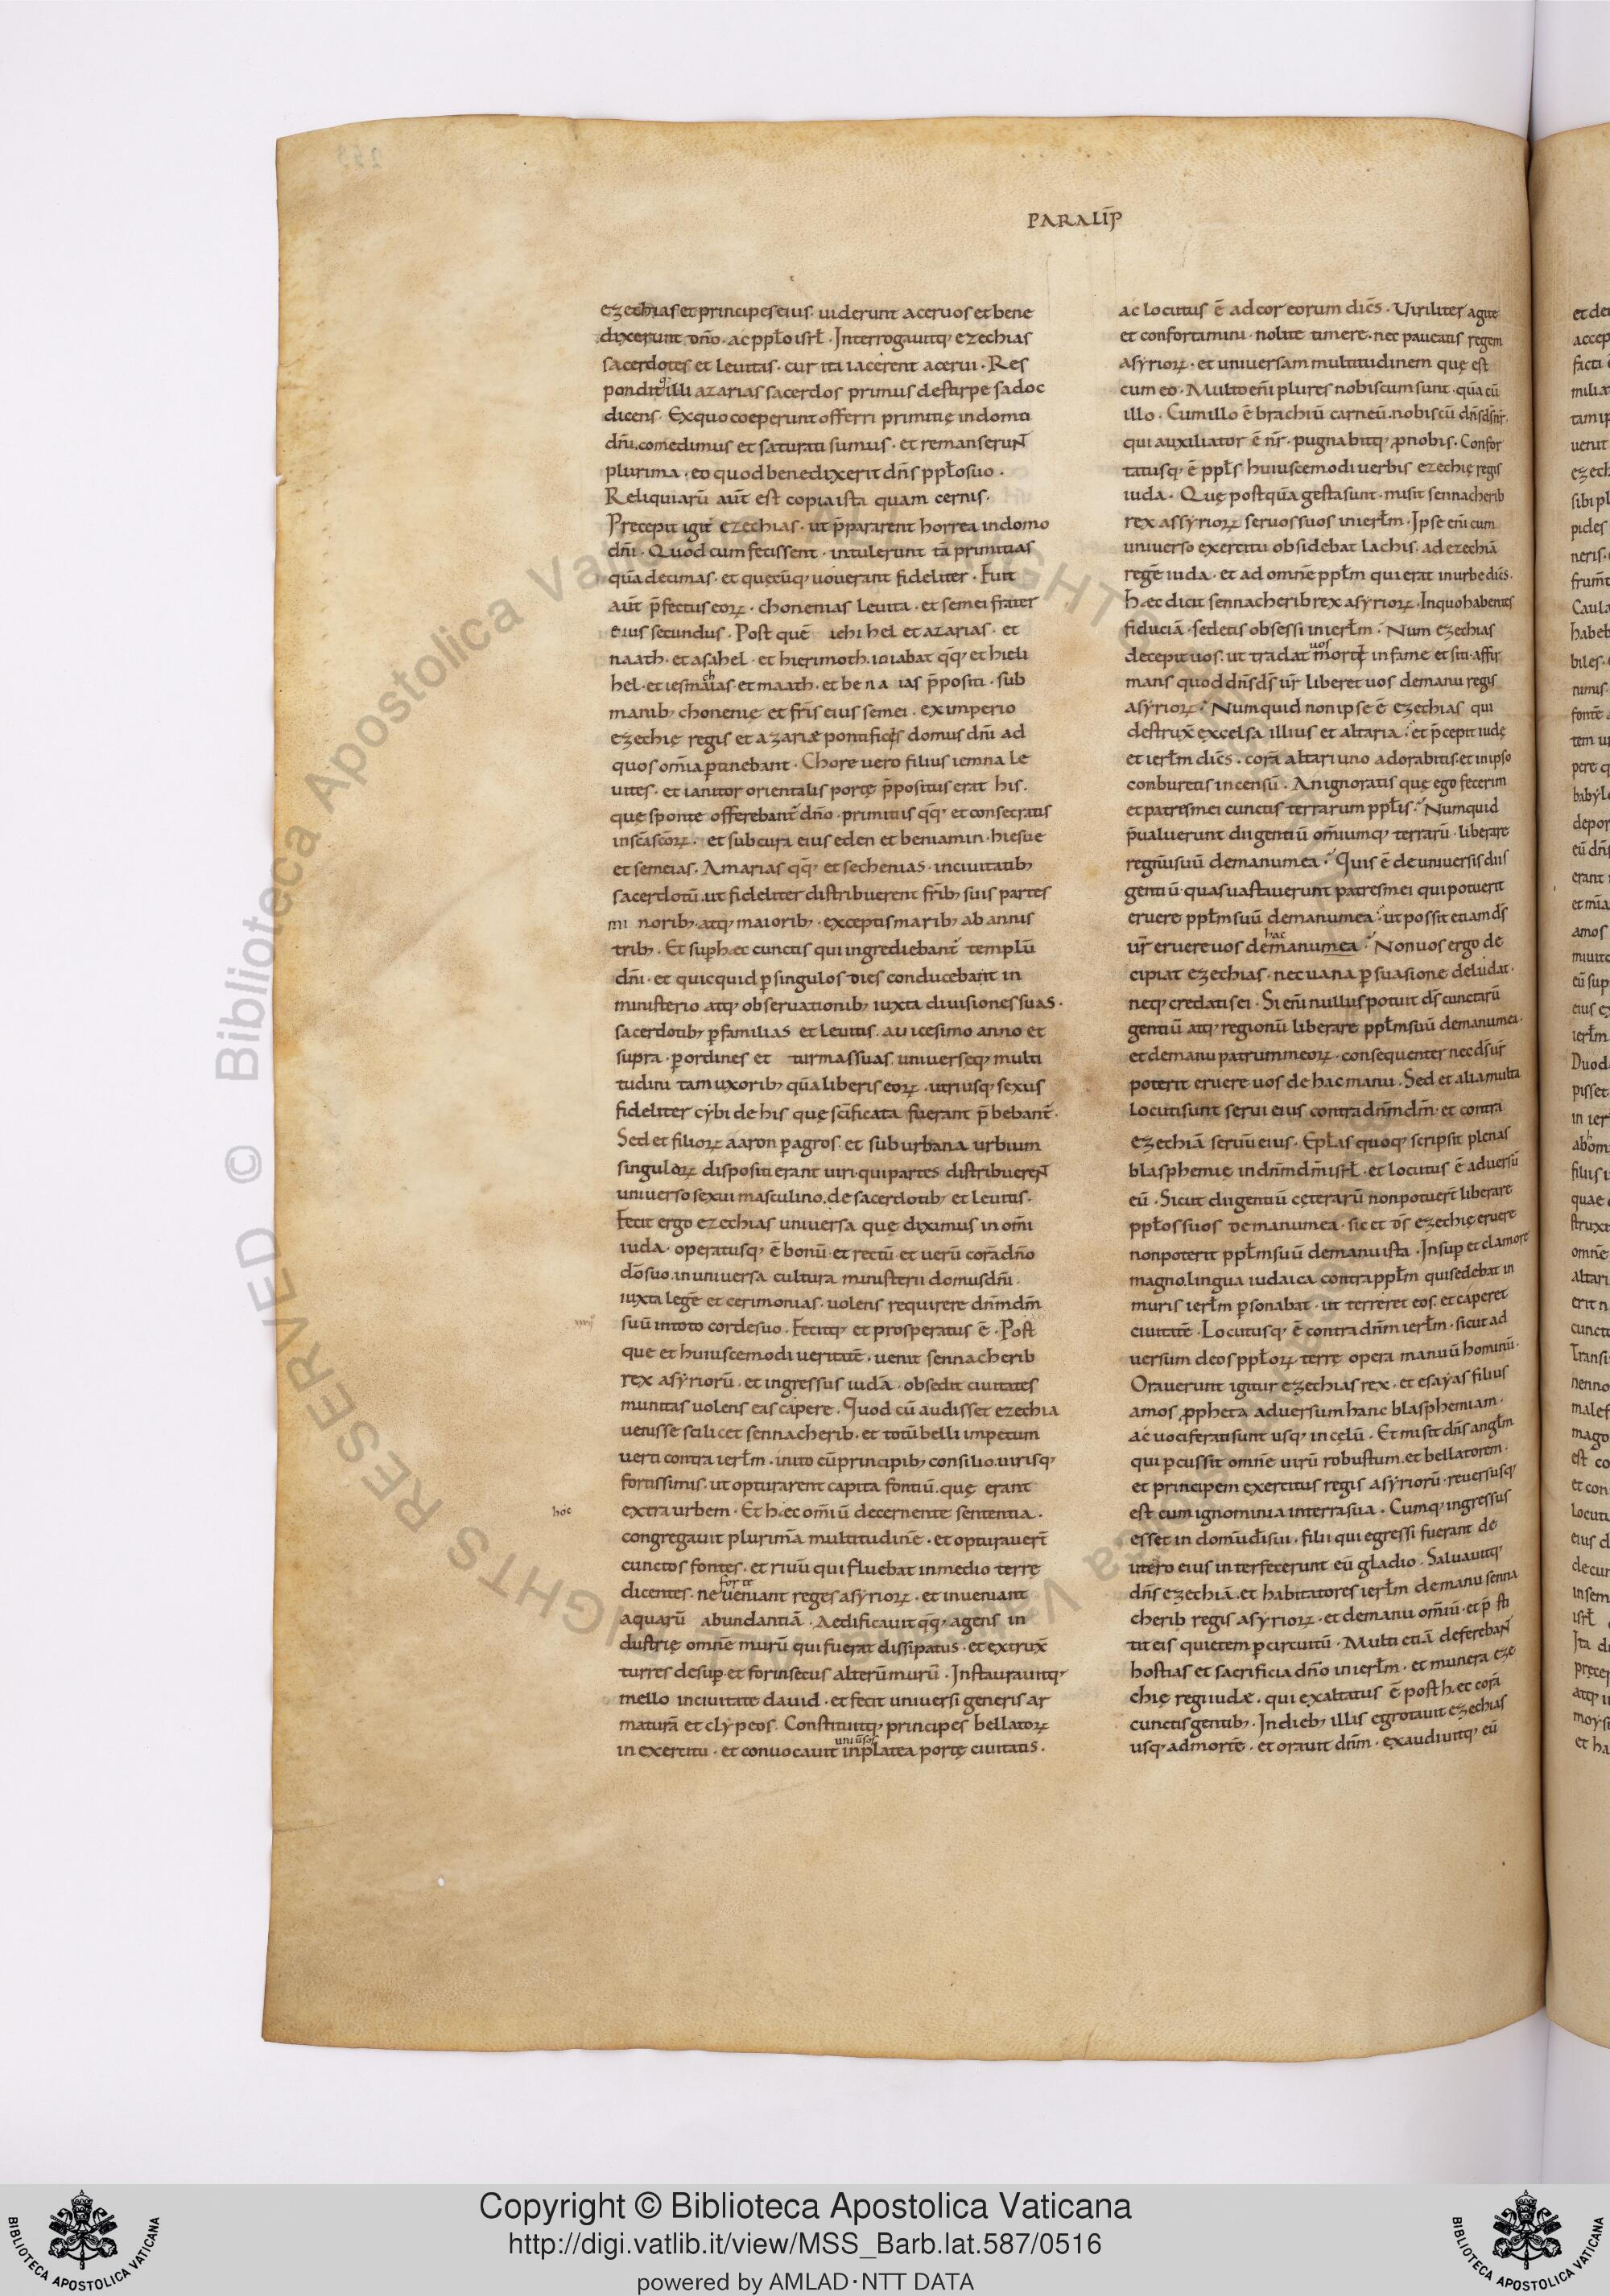 PARALIP̄
ezechias et principes eius. uiderunt aceruos et bene
dixerunt dn̄o. ac ppło isrł. Interrogauitq; ezechias
sacerdotes et leuitas. cur ita iacerent acerui. Res
pondit illi azarias sacerdos primus de stirpe sadoc
dicens. Ex quo coeperunt offerri primitię in domo
dn̄i. comedimus et saturati sumus. et remanserunt
plurima. eo quod benedixerit dn̄s ppło suo.
Reliquiarū aut̄ est copia ista quam cernis.
Precepit igit̄ ezechias. ut p̄pararent horrea in domo
dn̄i. Quod cum fecissent. intulerunt tā primitias
quā decimas. et quęcūq; uouerant fideliter. Fuit
aut̄ p̄fectus eoꝝ. chonenias leuita. et semei frater
eius secundus. Post quē iehihel et azarias. et
naath. et asahel. et hierimoth. ioiabat qq; et hieli
hel. et iesmāias. et maath. et bena ias p̄positi. sub
manib; chonenię et fr̄is eius semei. ex imperio
ezechię regis et azariæ pontificis domus dn̄i ad
quos om̄ia ꝑtinebant. Chore uero filius iemna le
uites. et ianitor orientalis portę p̄positus erat his.
quę sponte offerebant̄ dn̄o. primitiis qq; et consecratis
in sc̄a sc̄oꝝ. et sub cura eius eden et beniamin. hiesue
et semeias. Amarias qq; et sechenias. in ciuitatib;
sacerdotū. ut fideliter distribuerent fr̄ib; suis partes
mi norib; atq; maiorib;. exceptis marib; ab annis
trib;. Et suꝑ hæc cunctis qui ingrediebant̄ templū
dn̄i. et quicquid ꝑ singulos dies conducebant̄ in
ministerio atq; obseruationib; iuxta diuisiones suas.
sacerdotib; ꝑ familias et leuitis. a uicesimo anno et
supra. ꝑ ordines et turmas suas. uniuerseq; multi
tudini tam uxorib; quā liberis eoꝝ. utriusq; sexus
fideliter cybi de his quę sc̄ificata fuerant p̄bebant̄.
Sed et filioꝝ aaron ꝑ agros. et suburbana urbium
singulaꝝ dispositi erant uiri. qui partes distribuerent
uniuerso sexui masculino. de sacerdotib; et leuitis.
Fecit ergo ezechias uniuersa quę diximus in om̄i
iuda. operatusq; ē bonū. et rectū. et uerū corā dn̄o
dō suo. in uniuersa cultura ministerii domus dn̄i.
iuxta legē et cerimonias. uolens requirere dn̄m dm̄
suū in toto corde suo. Fecitq; et prosperatus ē. Post
que et huiuscemodi ueritatē. uenit sennacherib
rex asyriorū. et ingressus iudā. obsedit ciuitates
munitas uolens eas capere. Quod cū audisset ezechia
uenisse scilicet sennacherib. et totū belli impetum
uerti contra ierłm. inito cū principib; consilio. uirisq;
fortissimis. ut opturarent capita fontiū. quę erant
hoc
extra urbem. Et hæc om̄iū decernente sententia.
congregauit plurimā multitudinē. et opturauer̄t
cunctos fontes. et riuū qui fluebat in medio terrę
forte
dicentes. ne ueniant reges asyrioꝝ. et inueniant
aquarū abundantiā. Aedificauit qq; agens in
dustrię omnē murū qui fuerat dissipatus. et extrux̄
turres desuꝑ. et forinsecus alterū murū. Instaurauitq;
mello in ciuitate dauid. et fecit uniuersi generis ar
maturā et clypeos. Constituitq; principes bellatoꝝ
uniūsos
in exercitu. et conuocauit in platea portę ciuitatis.
ac locutus ē ad cor eorum dic̄s. Uiriliter agite
et confortamini. nolite timere. nec paueatis regem
asyrioꝝ. et uniuersam multitudinem quę est
cum eo. Multo eni plures nobiscum sunt. quā cū
illo. Cum illo ē brachiū carneū. nobiscū dn̄s ds̄ nr̄.
qui auxiliator ē nr̄. pugnabitq; ꝓ nobis. Confor
tatusq; ē ppłs huiuscemodi uerbis ezechię regis
iuda. Quę postquā gesta sunt. misit sennacherib
rex assyrioꝝ seruos suos in ierłm. Ipse eni cum
uniuerso exercitu obsidebat lachis. ad ezechiā
regē iuda. et ad omnē ppłm qui erat in urbe dic̄s.
hæc dicit sennacherib rex asyrioꝝ. In quo habentes
fiduciā. sedetis obsessi in ierłm. Num ezechias
uos
decepit uos. ut tradat morti in fame et siti. affir
mans quod dn̄s ds̄ ur̄ liberet uos de manu regis
asyrioꝝ. Numquid non ipse ē ezechias qui
destrux̄ excelsa illius et altaria. et p̄cepit iudę
et ierłm dic̄s. corā altari uno adorabitis. et in ipso
conburetis incensū. An ignoratis quę ego fecerim
et patres mei cunctis terrarum ppłis. Numquid
p̄ualuerunt dii gentiū om̄iumq; terrarū. liberare
regnū suū de manu mea. Quis ē de uniuersis diis
gentiū. quas uastauerunt patres mei qui potuerit
eruere ppłm suū de manu mea. ut possit etiam ds̄
hac
ur̄ eruere uos de manu mea. Non uos ergo de
cipiat ezechias. nec uana ꝑsuasione deludat.
neq; credatis ei. Si eni nullus potuit ds̄ cunctarū
gentiū atq; regionū liberare ppłm suū de manu mei.
et de manu patrum meoꝝ. consequenter nec ds̄ ur̄
poterit eruere uos de hac manu. Sed et alia multa
locuti sunt serui eius contra dn̄m dm̄. et contra
ezechiā seruū eius. Epłas quoq; scripsit plenas
blasphemię in dn̄m dm̄ isrł. et locutus ē aduersū
eū. Sicut dii gentiū cęterarū non potuer̄t liberare
ppłos suos de manu mea. sic et ds̄ ezechię eruere
non poterit ppłm suū de manu ista. Insuꝑ et clamore
magno. lingua iudaica contra ppłm qui sedebat in
muris ierłm ꝑsonabat. ut terreret eos. et caperet
ciuitatē. Locutusq; ē contra dn̄m ierłm. sicut ad
uersum deos ppłoꝝ terrę opera manuū hominū.
Orauerunt igitur ezechias rex. et esayas filius
amos ꝓpheta aduersum hanc blasphemiam.
ac uociferati sunt usq; in cęlū. Et misit dn̄s angłm
qui ꝑcussit omnē uirū robustum. et bellatorem.
et principem exercitus regis asyriorū. reuersusq;
est cum ignominia in terra sua. Cumq; ingressus
esset in domū di̅ sui. filii qui egressi fuerant de
utero eius interfecerunt eū gladio. Saluauitq;
dn̄s ezechiā. et habitatores ierłm de manu senna
cherib regis asyrioꝝ. et de manu omiū. et p̄ sti
tit eis quietem ꝑ circuitū. Multi etiā deferebant
hostias et sacrificia dn̄o in ierłm. et munera eze
chię regi iudæ. qui exaltatus ē post hæc corā
cunctis gentib;. In dieb; illis egrotauit ezechias
usq; ad mortē. et orauit dn̄m. exaudiuitq; eū
© Biblioteca Apostolica Vaticana ALL RIGHTS RESERVED
Copyright © Biblioteca Apostolica Vaticana
http://digi.vatlib.it/view/MSS_Barb.lat.587/0516
powered by AMLAD·NTT DATA
BIBLIOTECA APOSTOLICA VATICANA
BIBLIOTECA APOSTOLICA VATICANA